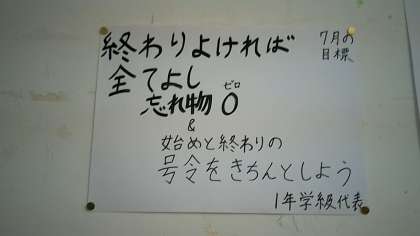 7月の
目標
終わりよければ
全てよし
忘れ物0
ゼロ
&
始めと終わりの
号令をきちんとしよう
1年学級代表